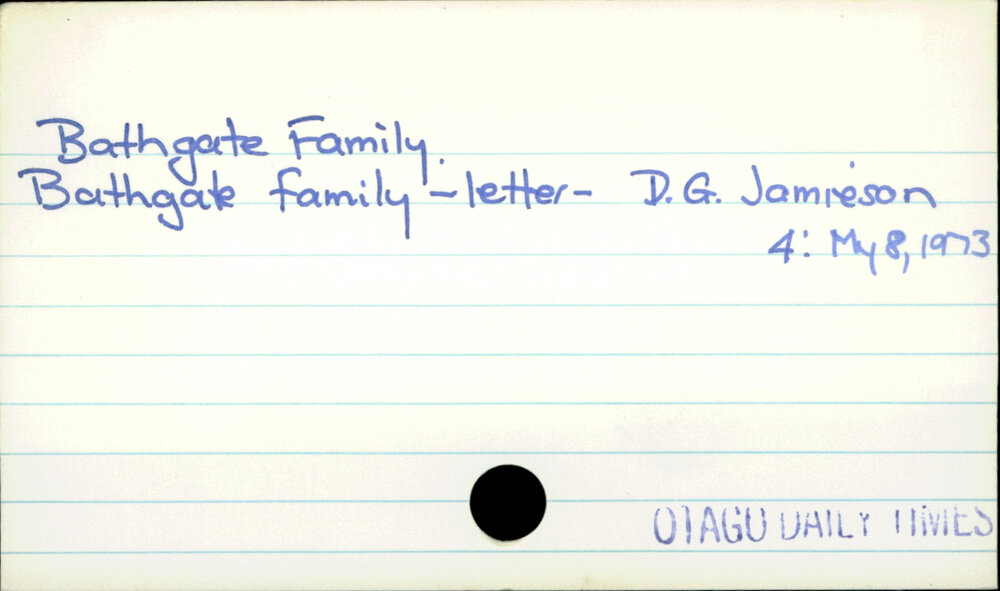 Bathgate Family.
Bathgate family - letter - D.G. Jamieson
4: My 8, 1973
OTAGO DAILY TIMES